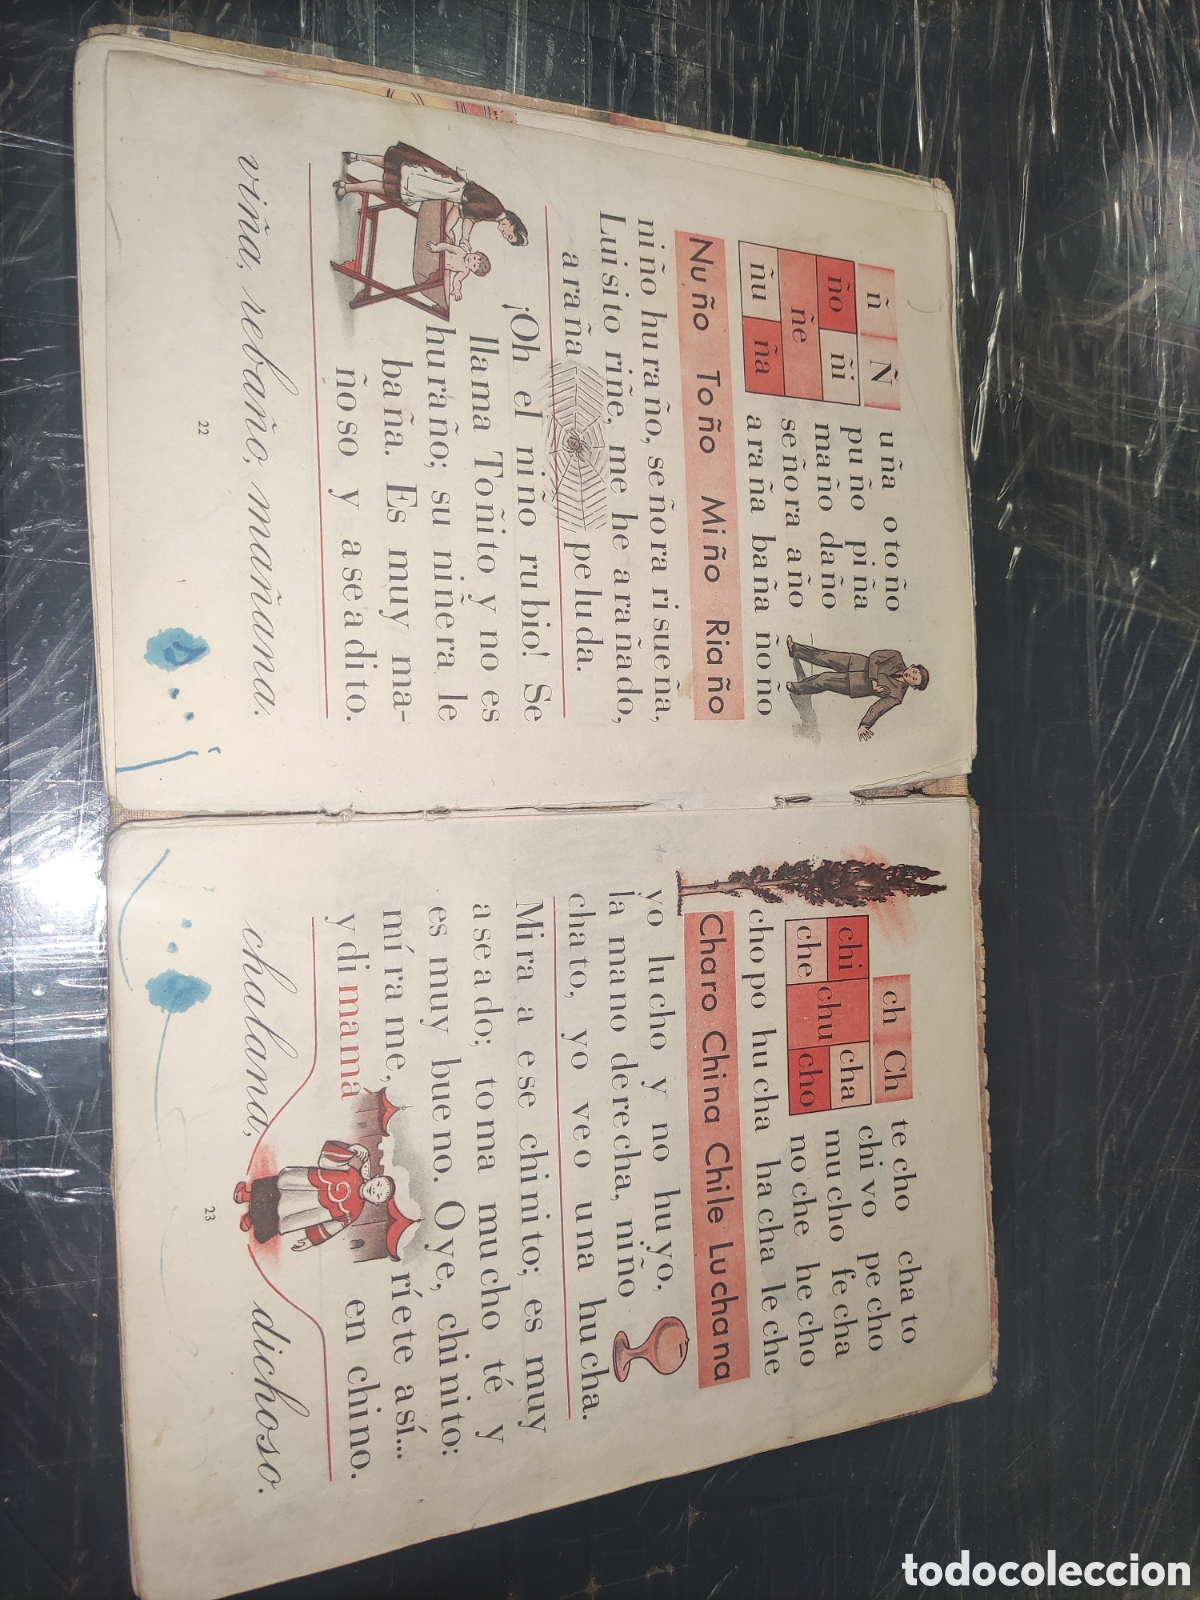 ñ Ñ
ño ñi
ñe
ñu ña
uña otoño
puño piña
maño daño
señora año
araña baña ñoño
Nuño Toño Miño Riaño
niño huraño, señora risueña,
Luisito riñe, me he arañado,
araña peluda.
¡Oh el niño rubio! Se
llama Toñito y no es
huraño; su niñera le
baña. Es muy ma-
ñoso y aseadito.
viña, rebaño, mañana.
22
ch Ch
chi cha
chu
che cho
techo chato
chivo pecho
mucho fecha
noche hecho
chopo hucha hacha leche
Charo China Chile Luchana
yo lucho y no huyo,
la mano derecha, niño
chato, yo veo una hucha.
Mira a ese chinito; es muy
aseado; toma mucho té y
es muy bueno. Oye, chinito:
mírame, ríete así...
y di mama en chino.
chalana, dichoso.
23
todocoleccion